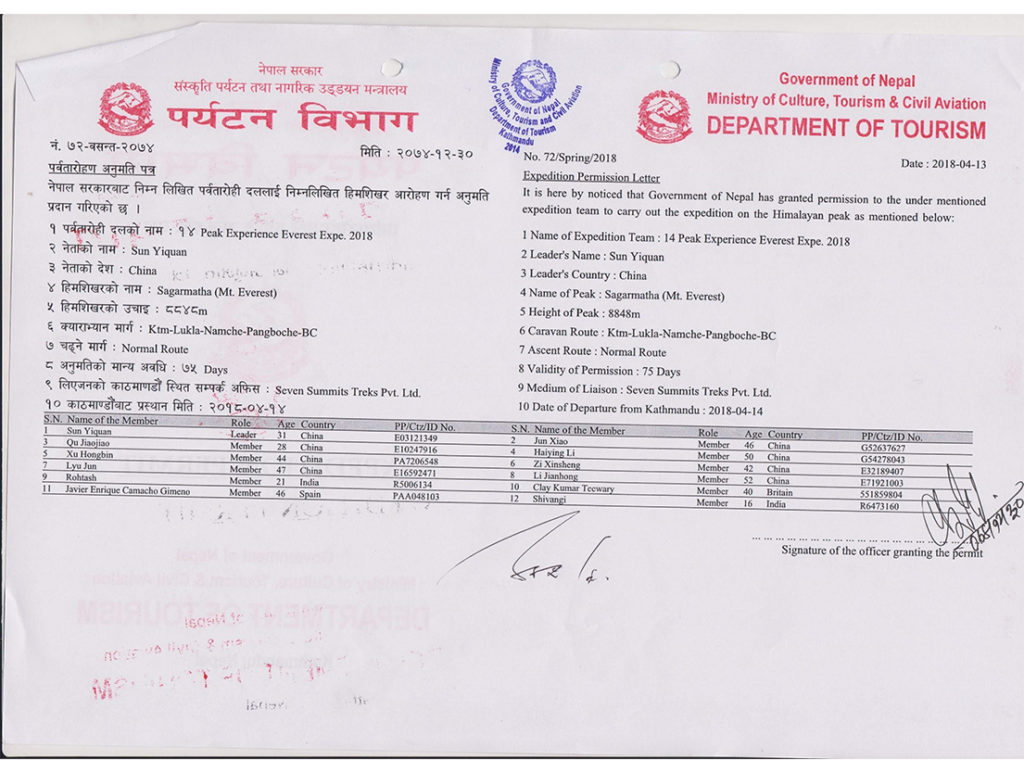 नेपाल सरकार
संस्कृति पर्यटन तथा नागरिक उड्डयन मन्त्रालय
पर्यटन विभाग
नं. ७२-बसन्त-२०७४
मिति : २०७४-१२-३०
पर्वतारोहण अनुमति पत्र
नेपाल सरकारबाट निम्न लिखित पर्वतारोही दललाई निम्नलिखित हिमशिखर आरोहण गर्न अनुमति
प्रदान गरिएको छ ।
१ पर्वतारोही दलको नाम : १४ Peak Experience Everest Expe. 2018
२ नेताको नाम : Sun Yiquan
३ नेताको देश : China
४ हिमशिखरको नाम : Sagarmatha (Mt. Everest)
५ हिमशिखरको उचाइ : ८८४८m
६ क्याराभ्यान मार्ग : Ktm-Lukla-Namche-Pangboche-BC
७ चढ्ने मार्ग : Normal Route
८ अनुमतिको मान्य अवधि : ७५ Days
९ लिएजनको काठमाण्डौं स्थित सम्पर्क अफिस : Seven Summits Treks Pvt. Ltd.
१० काठमाण्डौंबाट प्रस्थान मिति : २०१८-०४-१४
Ministry of Culture, Tourism and Civil Aviation
Government of Nepal
Department of Tourism
Kathmandu
2014
Government of Nepal
Ministry of Culture, Tourism & Civil Aviation
DEPARTMENT OF TOURISM
No. 72/Spring/2018
Date : 2018-04-13
Expedition Permission Letter
It is here by noticed that Government of Nepal has granted permission to the under mentioned
expedition team to carry out the expedition on the Himalayan peak as mentioned below:
1 Name of Expedition Team : 14 Peak Experience Everest Expe. 2018
2 Leader's Name : Sun Yiquan
3 Leader's Country : China
4 Name of Peak : Sagarmatha (Mt. Everest)
5 Height of Peak : 8848m
6 Caravan Route : Ktm-Lukla-Namche-Pangboche-BC
7 Ascent Route : Normal Route
8 Validity of Permission : 75 Days
9 Medium of Liaison : Seven Summits Treks Pvt. Ltd.
10 Date of Departure from Kathmandu : 2018-04-14
S.N. Name of the Member Role Age Country PP/Ctz/ID No. S.N. Name of the Member Role Age Country PP/Ctz/ID No.
1 Sun Yiquan Leader 31 China E03121349 2 Jun Xiao Member 46 China G52637627
3 Qu Jiaojiao Member 28 China E10247916 4 Haiying Li Member 50 China G54278043
5 Xu Hongbin Member 44 China PA7206548 6 Zi Xinsheng Member 42 China E32189407
7 Lyu Jun Member 47 China E16592471 8 Li Jianhong Member 52 China E71921003
9 Rohtash Member 21 India R5006134 10 Clay Kumar Teewary Member 40 Britain 551859804
11 Javier Enrique Camacho Gimeno Member 46 Spain PAA048103 12 Shivangi Member 16 India R6473160
Signature of the officer granting the permit